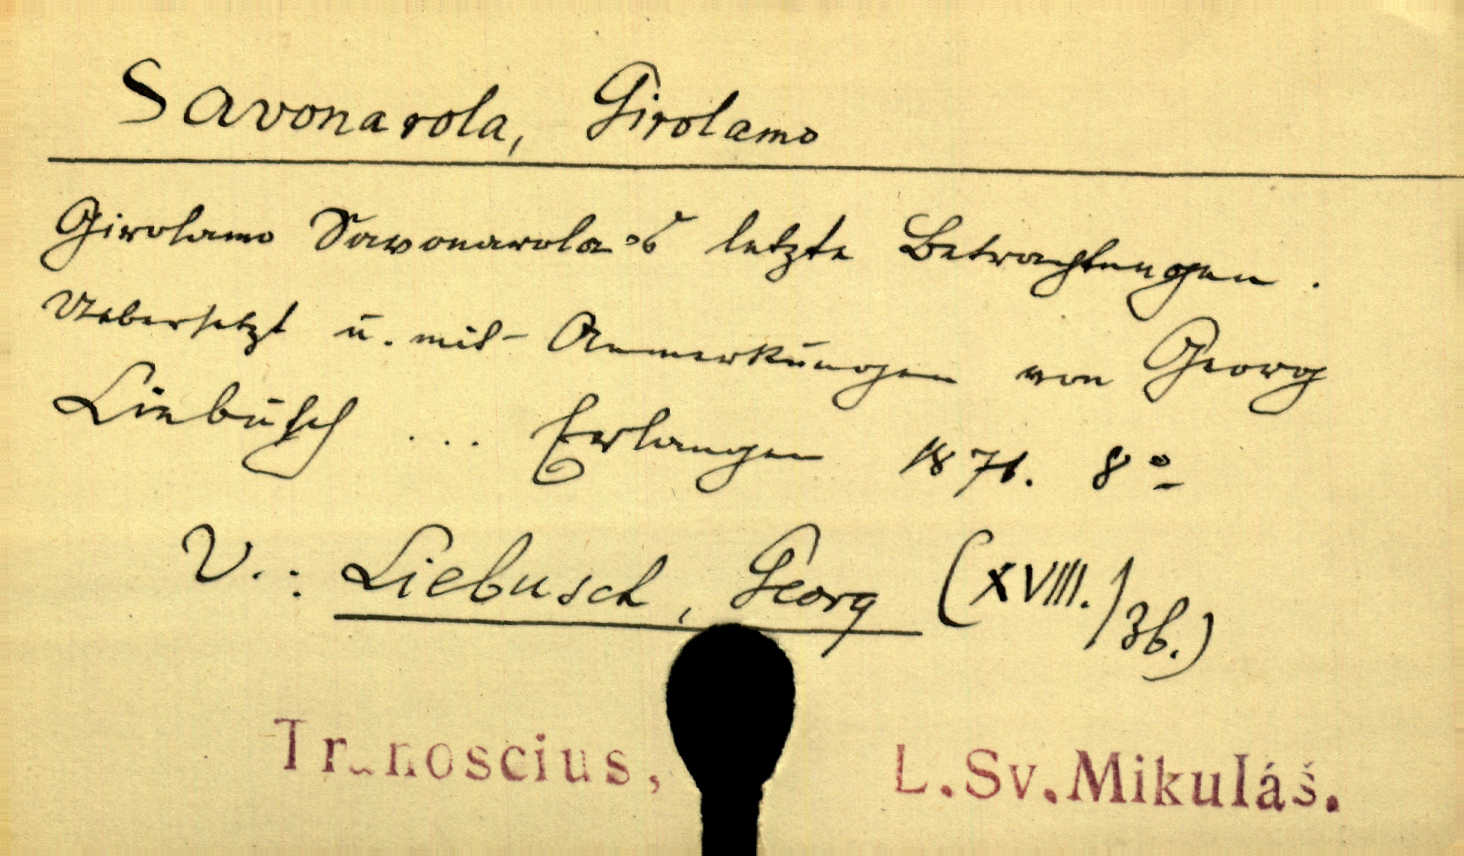 Savonarola, Girolamo
Girolamo Savonarola's letzte Betrachtungen.
Uebersetzt u. mit Anmerkungen von Georg
Liebusch ... Erlangen 1871. 8°
V.: Liebusch, Georg (XVIII./3b.)
Tranoscius, L.Sv.Mikuláš.